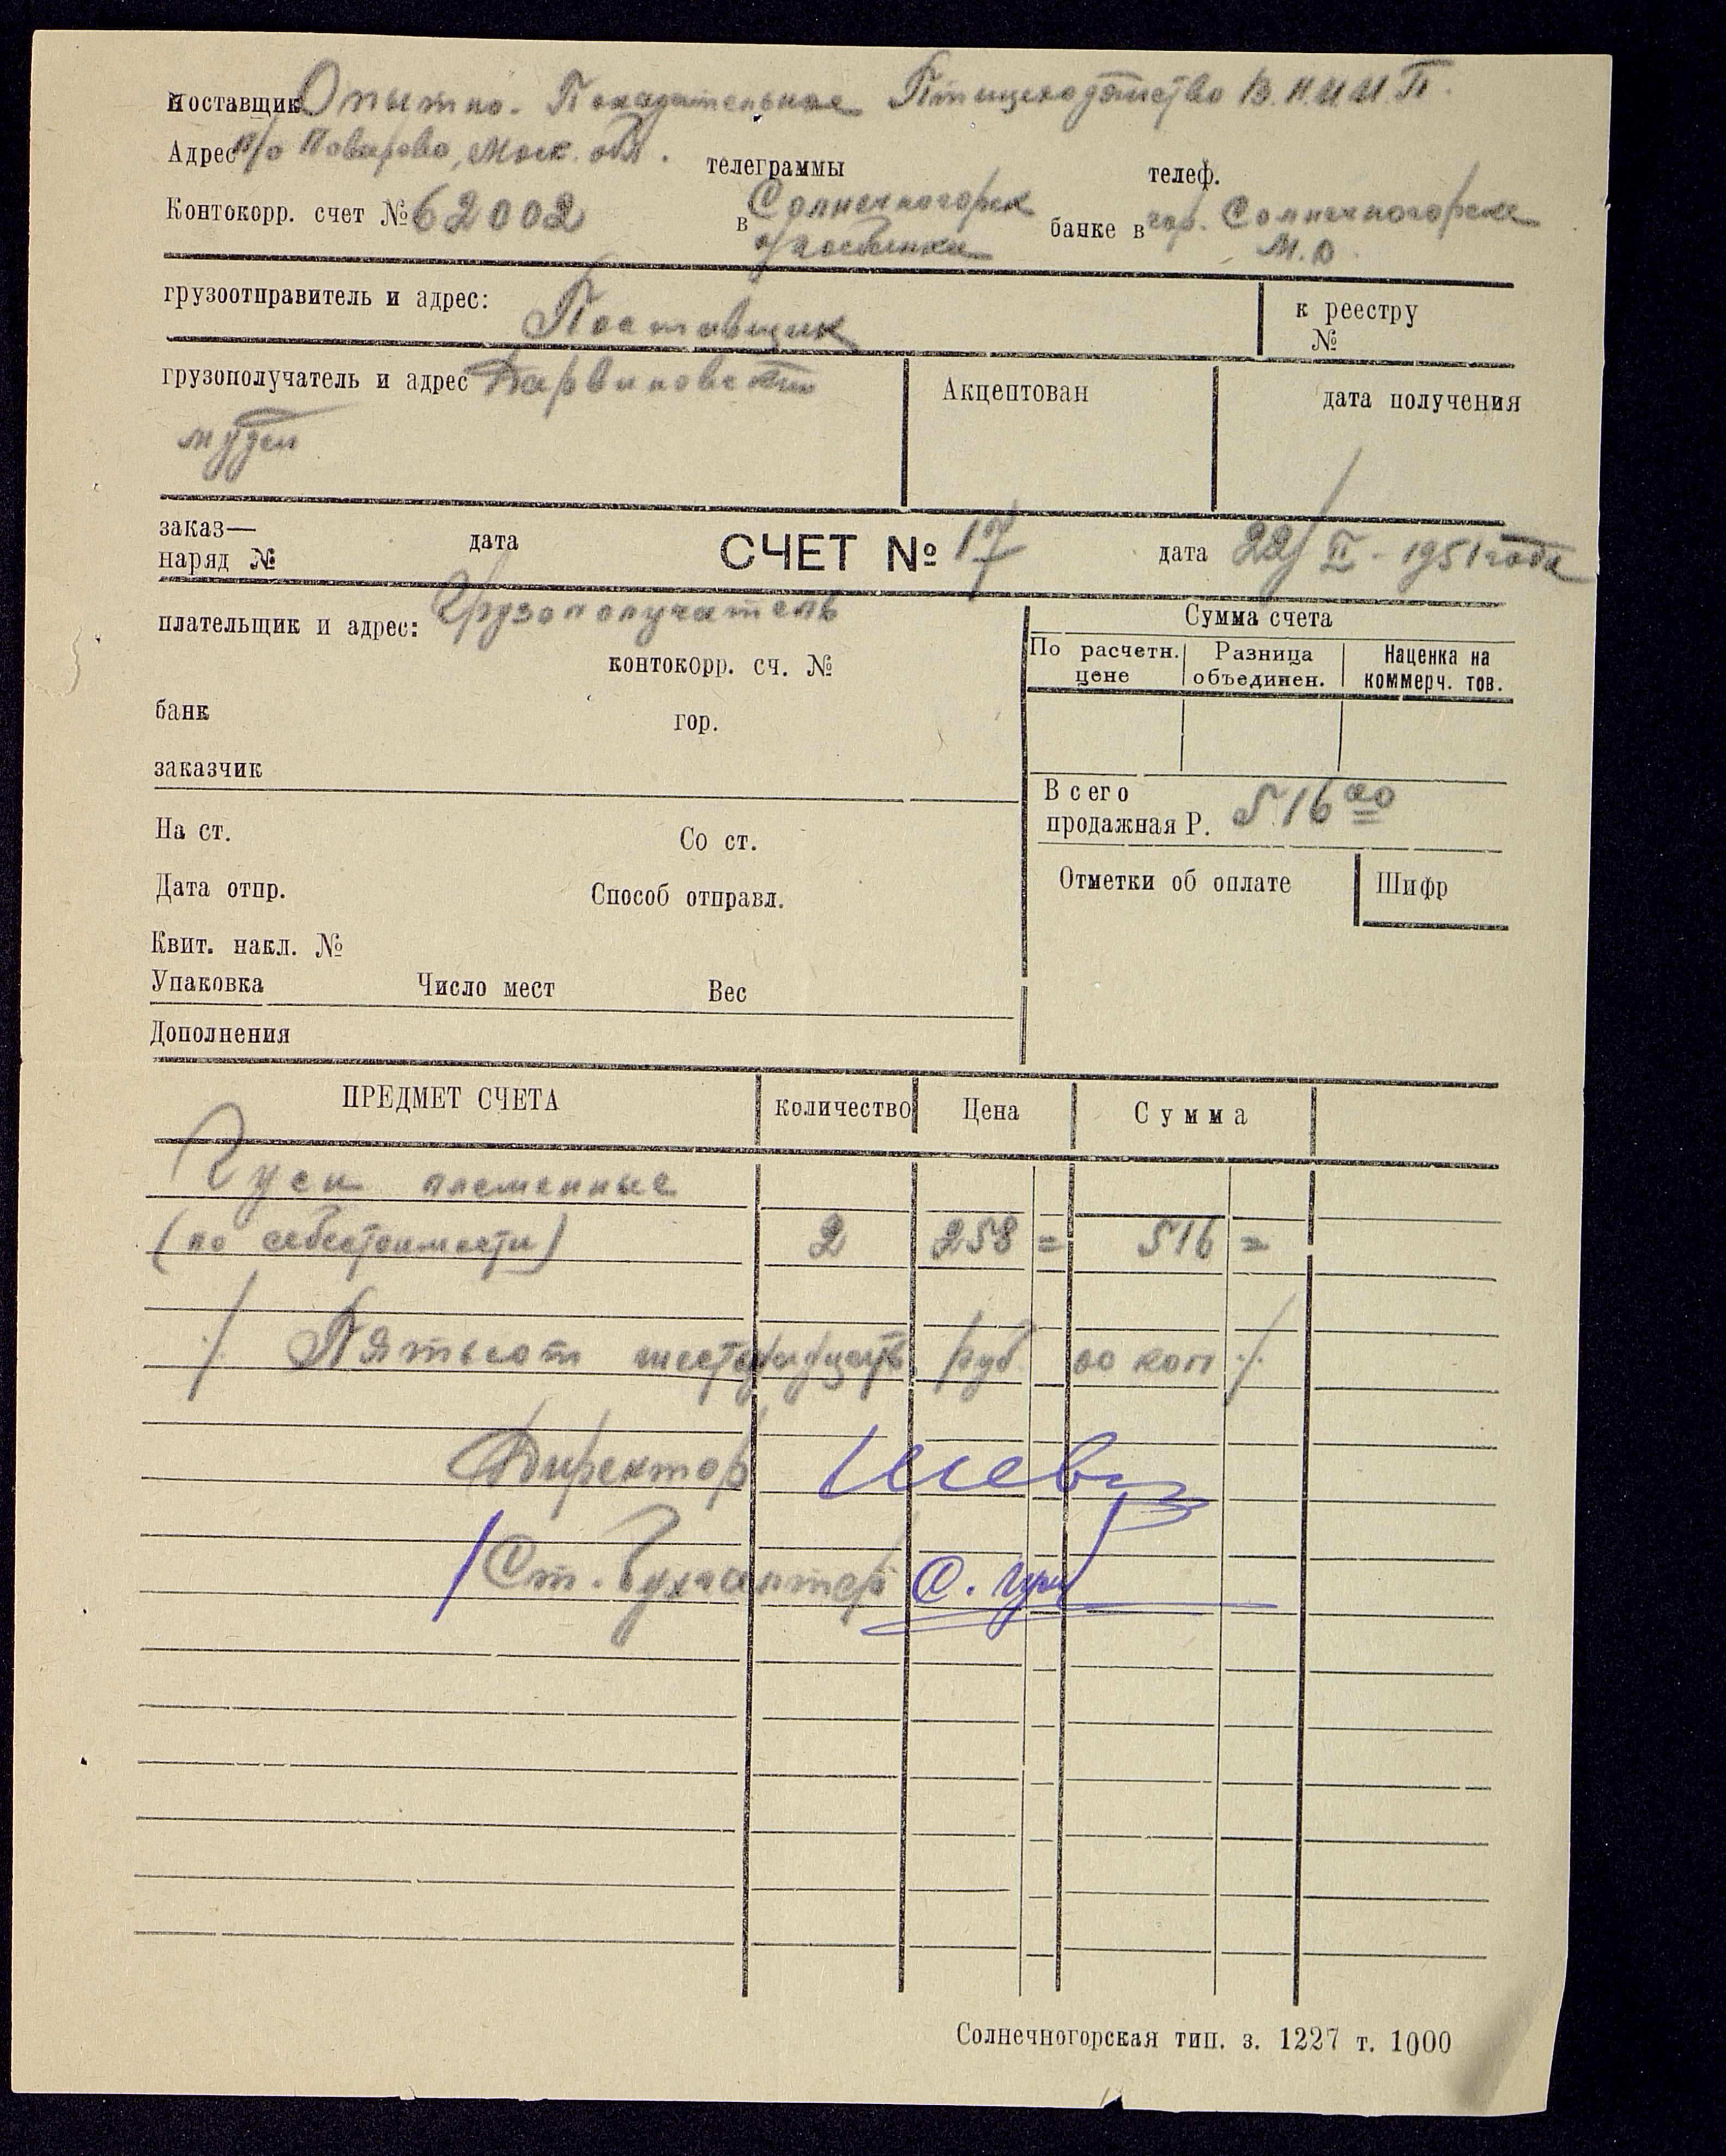 Поставщик Опытно-Показательное Птицехозяйство В.Н.И.И.П.
Адрес п/о Поварово, Моск. обл. телеграммы телеф.
Контокорр. счет № 62002 в Солнечногорск банке в гор. Солнечногорске
о/госбанка М.О.
грузоотправитель и адрес: Поставщик к реестру №
грузополучатель и адрес Дарвиновский Акцептован дата получения
музей
заказ— наряд № дата СЧЕТ № 17 дата 22/II - 1951 года
плательщик и адрес: Грузополучатель Сумма счета
контокорр. сч. № По расчетн. цене Разница объединен. Наценка на коммерч. тов.
банк гор.
заказчик
Всего продажная Р. 516 00
На ст. Со ст.
Отметки об оплате Шифр
Дата отпр. Способ отправл.
Квит. накл. №
Упаковка Число мест Вес
Дополнения
ПРЕДМЕТ СЧЕТА количество Цена Сумма
Гуси племенные
(по себестоимости) 2 258 = 516 =
/ Пятьсот шестнадцать руб 00 коп /
Директор
Ст. Бухгалтер
Солнечногорская тип. з. 1227 т. 1000